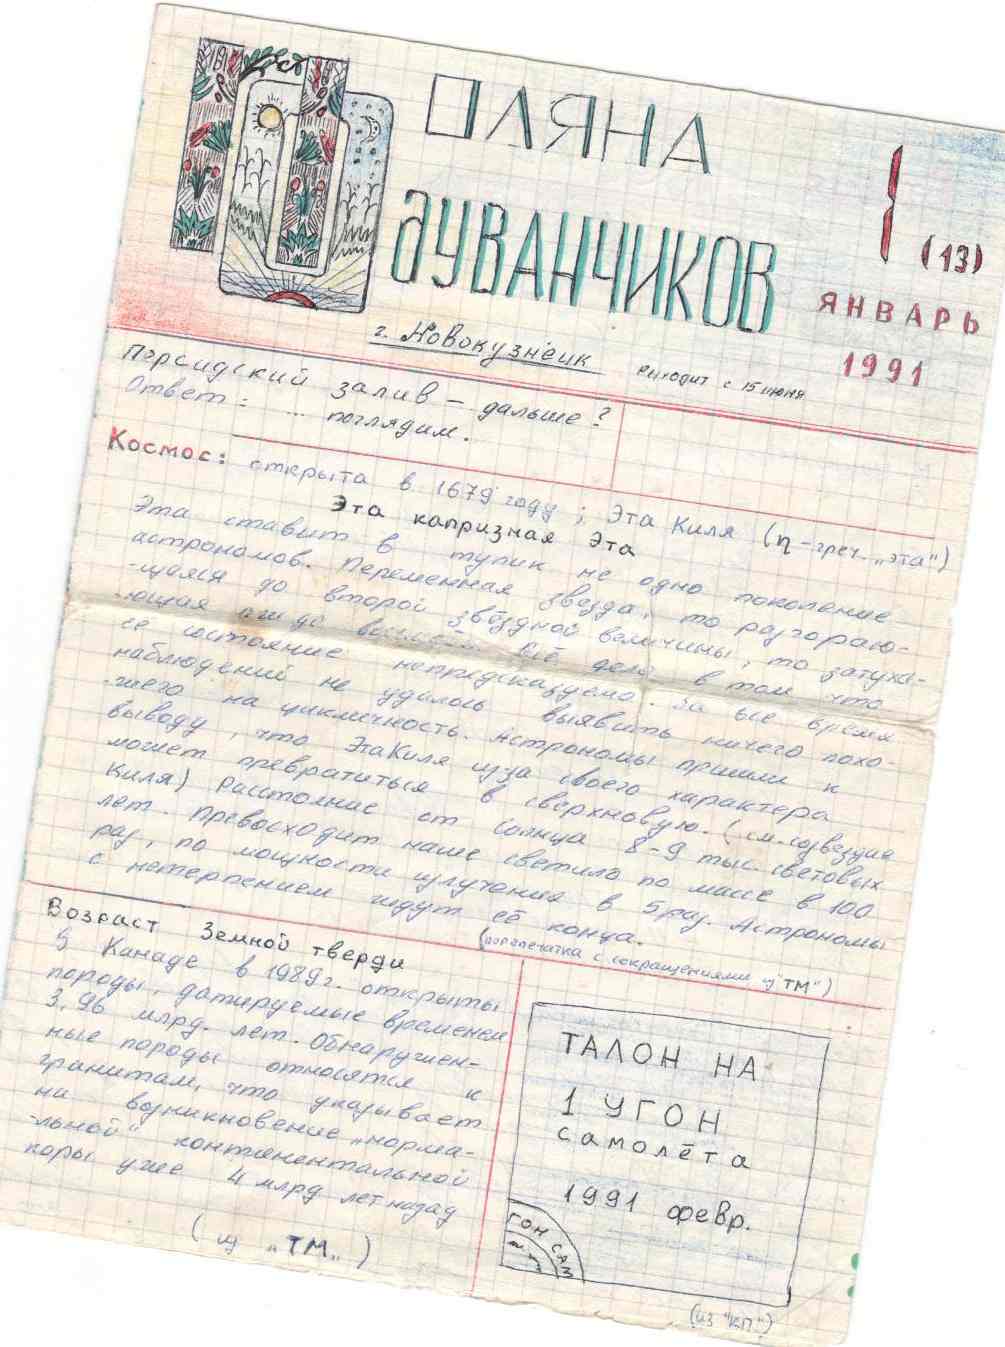 ПОЛЯНА
ОДУВАНЧИКОВ
1 (13)
ЯНВАРЬ
1991
г. Новокузнецк
выходит с 15 июня
Персидский залив – дальше?
Ответ: ... поглядим.
Космос: открыта в 1679 году; Эта Киля (η – греч. „эта")
Эта капризная Эта
Эта ставит в тупик не одно поколение
астрономов. Переменная звезда, то разгораю-
-щаяся до второй звёздной величины, то затуха-
-ющая до всё дело в том что
её состояние непредсказуемо. За все время
наблюдений не удалось выявить ничего похо-
-жего на цикличность. Астрономы пришли к
выводу, что Эта Киля из за своего характера
может превратиться в сверхновую. (см. созвездие
Киля) Расстояние от Солнца 8-9 тыс. световых
лет. Превосходит наше светило по массе в 100
раз, по мощности излучения в 5 раз. Астрономы
с нетерпением ждут её конца.
(перепечатка с сокращениями из "ТМ")
Возраст Земной тверди
В Канаде в 1989г. открыты
породы, датируемые временем
3,96 млрд. лет. Обнаружен-
ные породы относятся к
гранитам, что указывает
на возникновение „норма-
-льной" континентальной
коры уже 4 млрд лет назад
(из „ТМ„)
ТАЛОН НА
1 УГОН
самолёта
1991 февр.
ГОН САМ
(из "КП")